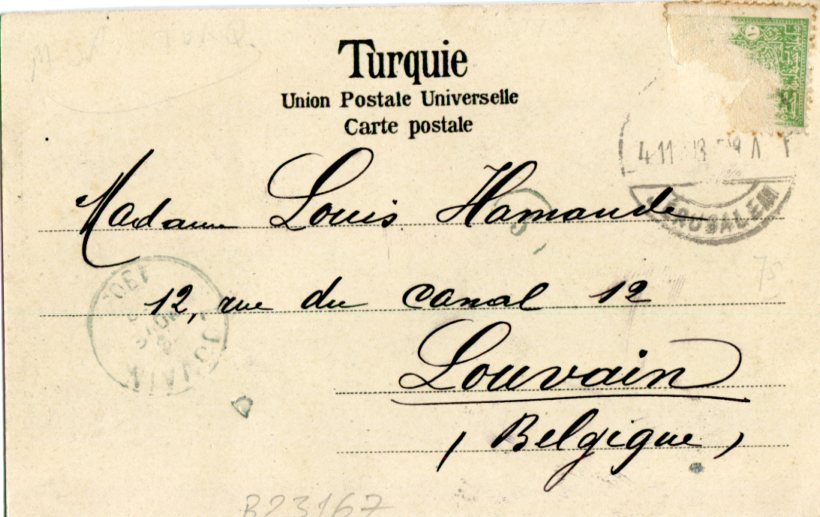 Turquie
Union Postale Universelle
Carte postale
JERUSALEM
Madame Louis Hamande
12, rue du canal 12
Louvain
(Belgique)
75
B23167